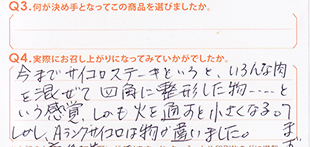 Q3.何が決め手となってこの商品を選びましたか。
Q4.実際にお召し上がりになってみていかがでしたか。
今までサイコロステーキというと、いろんな肉
を混ぜて四角に整形した物‥‥と
いう感覚、しかも火を通すと小さくなる。
しかし、Aランクサイコロは物が違いました。ま